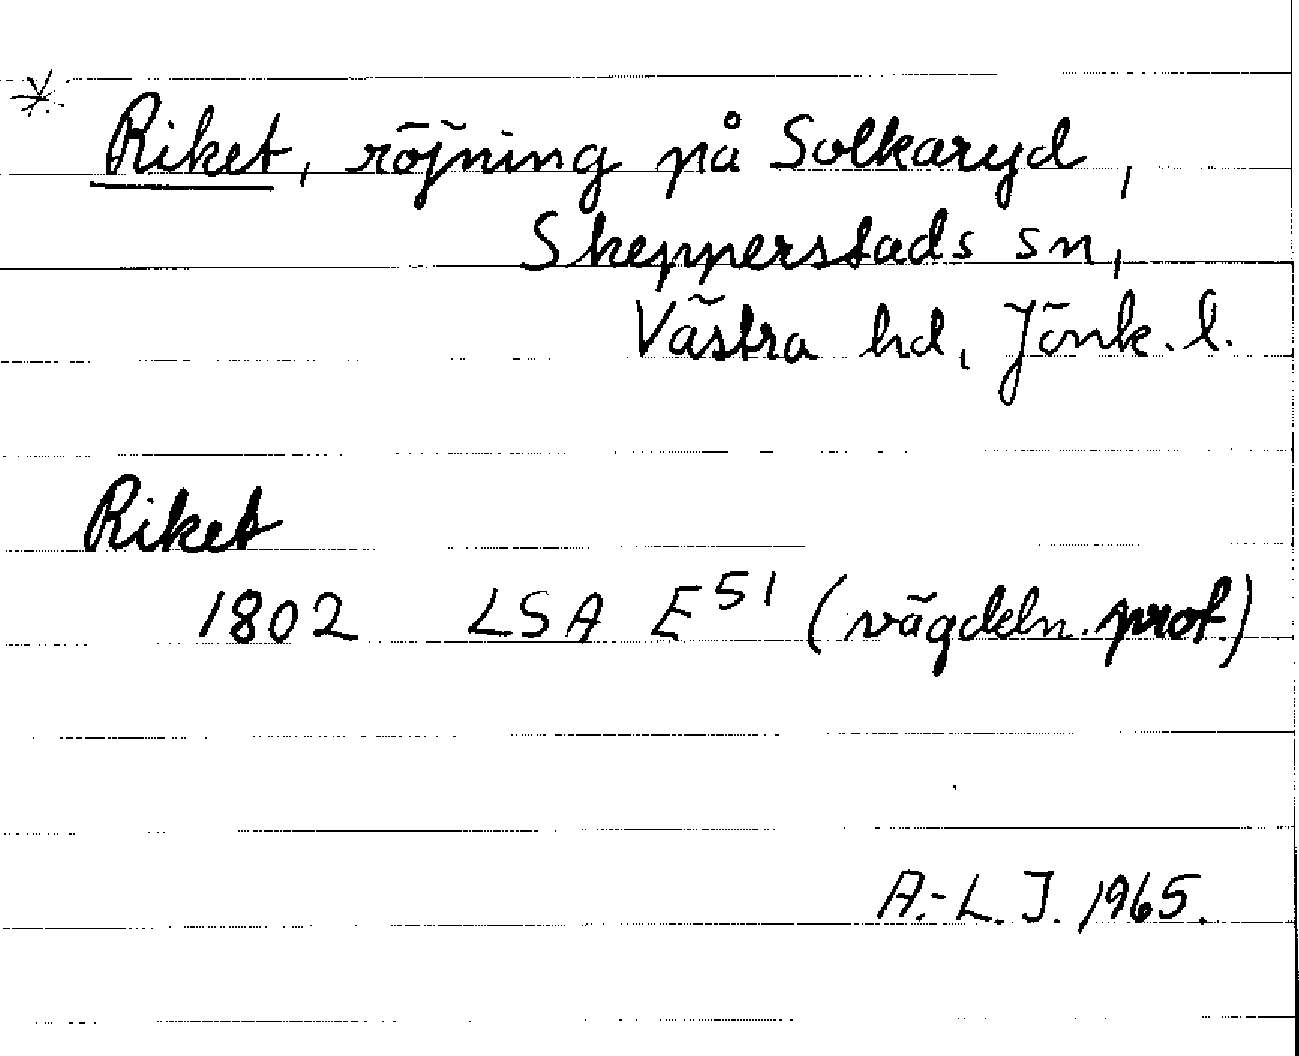 * Riket, röjning på Solkaryd,
Skepperstads sn,
Västra hd, Jönk. l.
Riket
1802 LSA E51 (vägdeln. prot.)
A.-L. J. 1965.